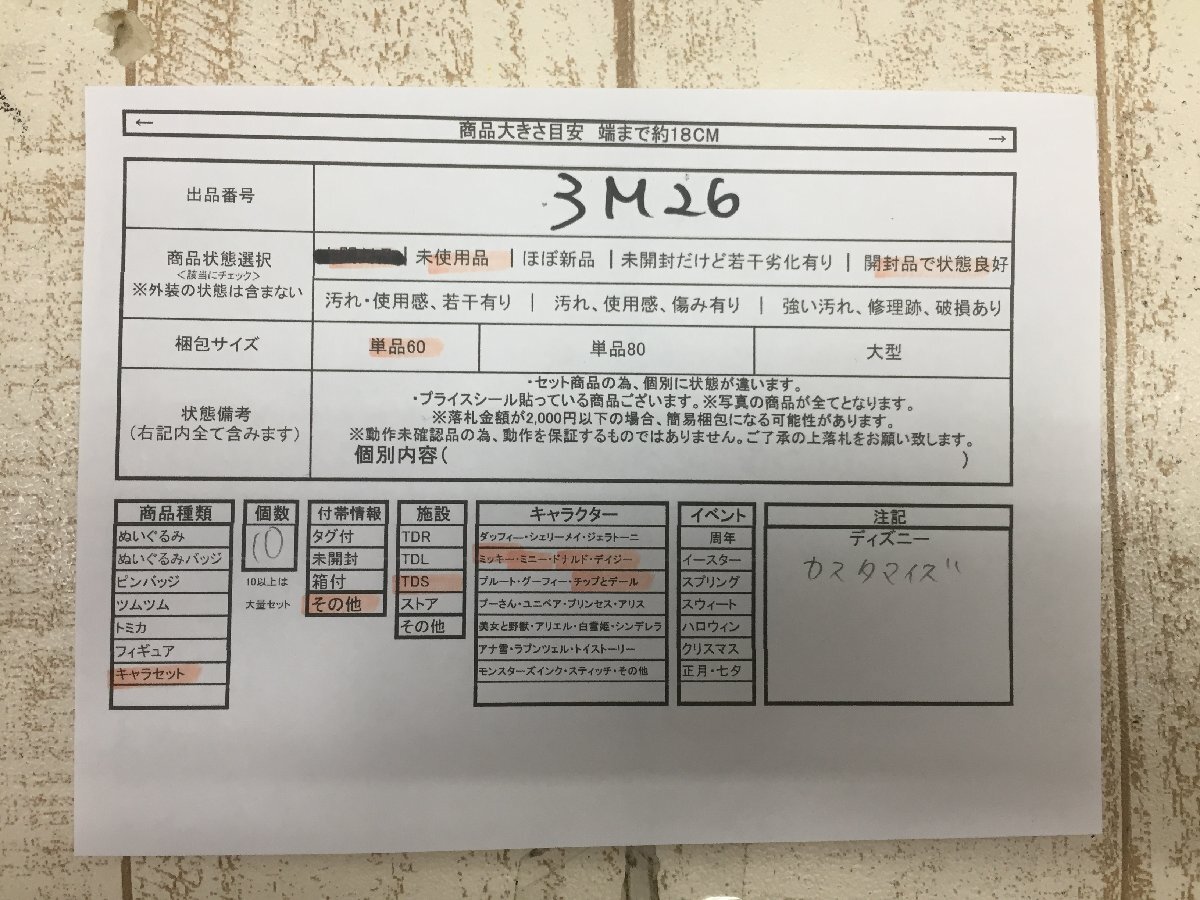 ← 商品大きさ目安 端まで約18CM →
出品番号 3M26
商品状態選択
<該当にチェック>
※外装の状態は含まない
| 未使用品 | ほぼ新品 | 未開封だけど若干劣化有り | 開封品で状態良好
汚れ・使用感、若干有り | 汚れ、使用感、傷み有り | 強い汚れ、修理跡、破損あり
梱包サイズ 単品60 単品80 大型
状態備考
(右記内全て含みます)
・セット商品の為、個別に状態が違います。
・プライスシール貼っている商品ございます。※写真の商品が全てとなります。
※落札金額が2,000円以下の場合、簡易梱包になる可能性があります。
※動作未確認品の為、動作を保証するものではありません。ご了承の上落札をお願い致します。
個別内容( )
商品種類
ぬいぐるみ
ぬいぐるみバッジ
ピンバッジ
ツムツム
トミカ
フィギュア
キャラセット
個数
10
10以上は
大量セット
付帯情報
タグ付
未開封
箱付
その他
施設
TDR
TDL
TDS
ストア
その他
キャラクター
ダッフィー・シェリーメイ・ジェラトーニ
ミッキー・ミニー・ドナルド・デイジー
プルート・グーフィー・チップとデール
プーさん・ユニベア・プリンセス・アリス
美女と野獣・アリエル・白雪姫・シンデレラ
アナ雪・ラプンツェル・トイストーリー
モンスターズインク・スティッチ・その他
イベント
周年
イースター
スプリング
スウィート
ハロウィン
クリスマス
正月・七夕
注記
ディズニー
カスタマイズ